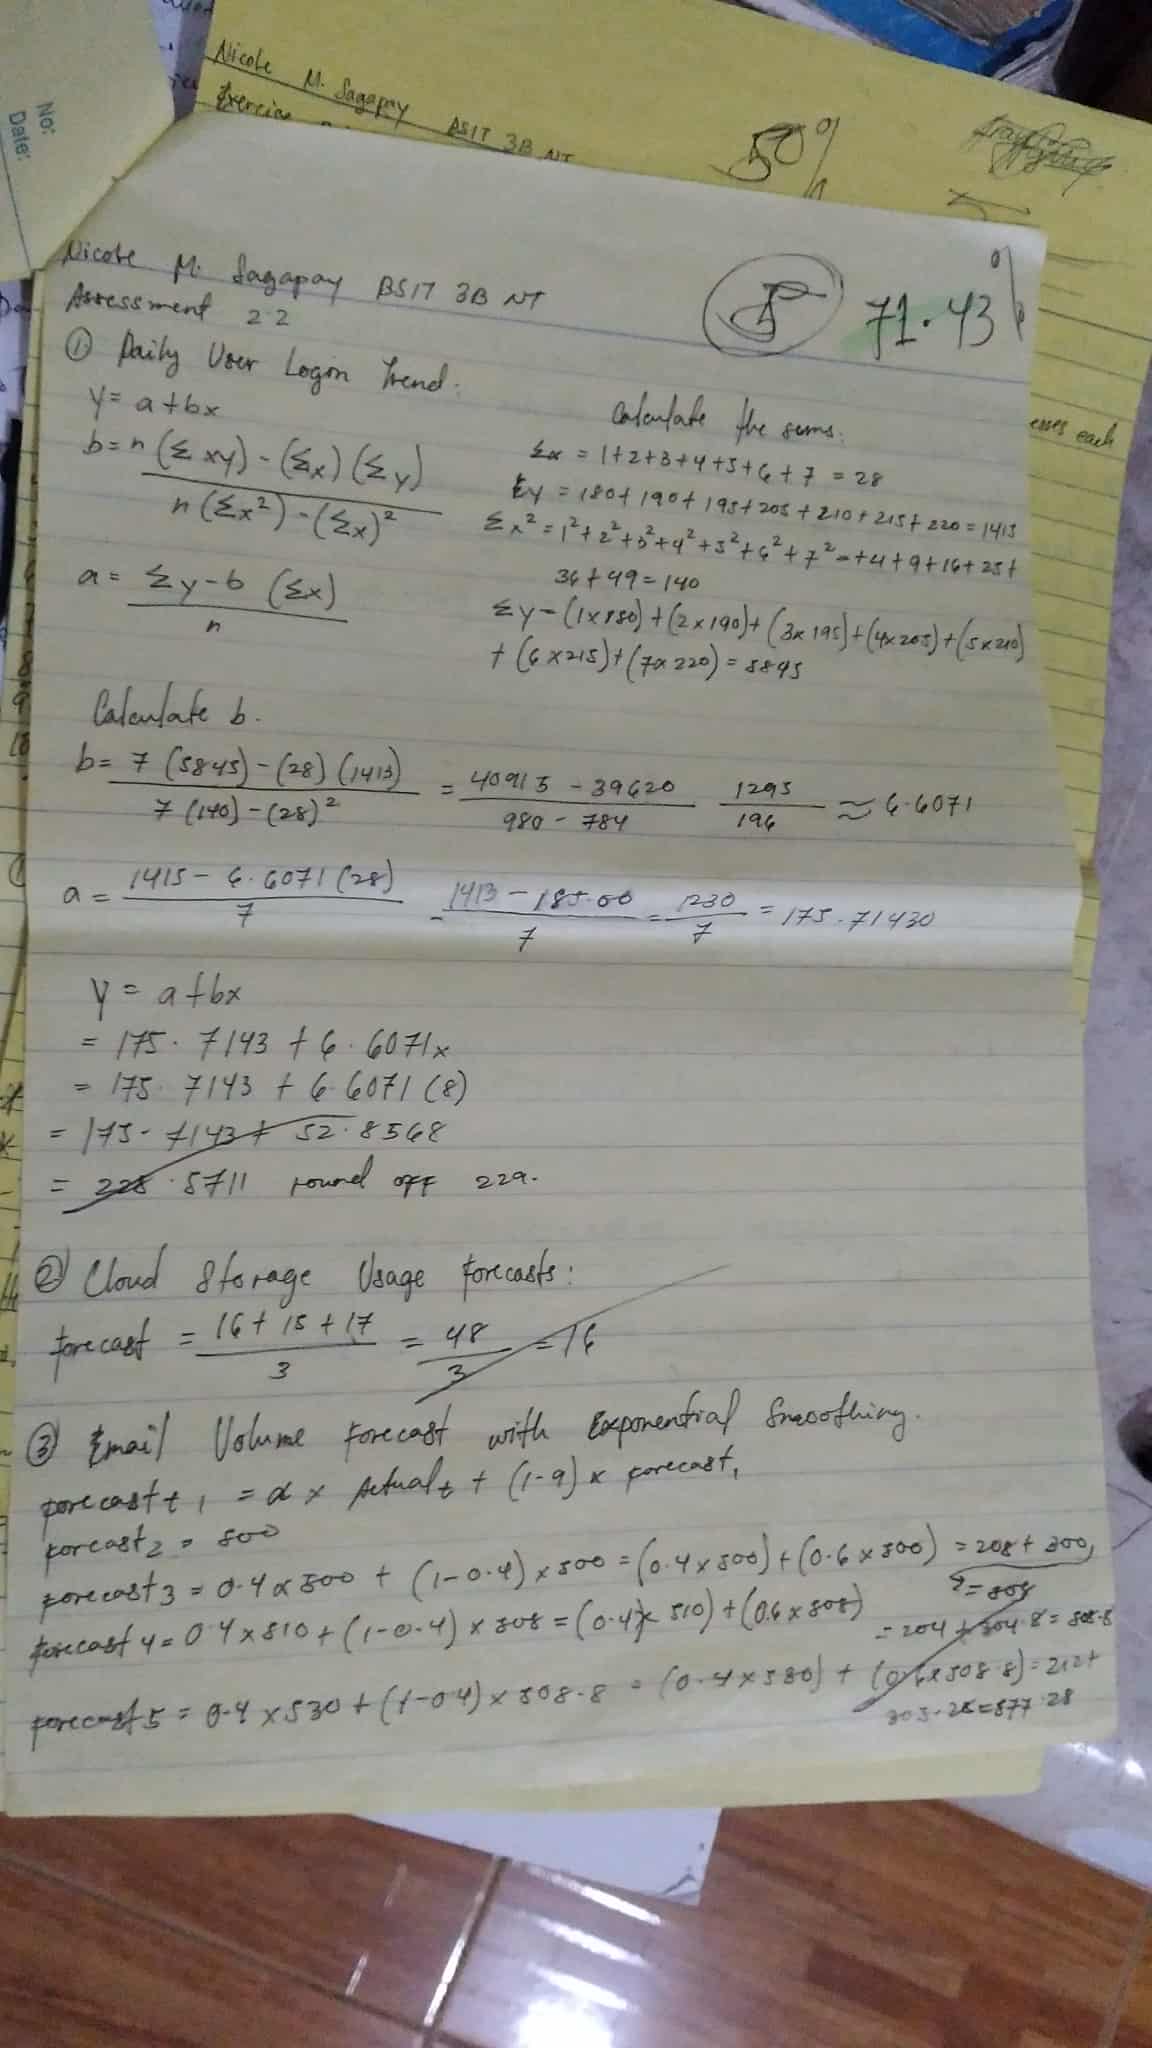 No:
Date:
Nicole M. Sagapay BSIT 3B NT
50%
esses each
Nicole M. Sagapay BSIT 3B NT
Assessment 2.2
5
71.43%
① Daily User Logon Trend:
y = a+bx
b = n(Σxy) - (Σx)(Σy)
n(Σx²) - (Σx)²
a = Σy - b (Σx)
n
Calculate the sums:
Σx = 1+2+3+4+5+6+7 = 28
Σy = 180+190+195+205+210+215+220 = 1415
Σx² = 1²+2²+3²+4²+5²+6²+7² = +4+9+16+25+
36+49 = 140
Σy = (1x180)+(2x190)+(3x195)+(4x205)+(5x210)
+(6x215)+(7x220) = 5845
Calculate b.
b = 7(5845) - (28)(1415) = 40915 - 39620 1295 ≈ 6.6071
7(140) - (28)² 980 - 784 196
a = 1415 - 6.6071(28) = 1415 - 185.00 = 1230 = 175.71430
7 7 7
y = a+bx
= 175.7143 + 6.6071x
= 175.7143 + 6.6071(8)
= 175.7143 + 52.8568
= 228.5711 round off 229.
② Cloud Storage Usage Forecasts:
Forecast = 16+15+17 = 48 = 16
3 3
③ Email Volume Forecast with Exponential Smoothing.
Forecast t 1 = α x Actual t + (1-α) x Forecast,
Forcast 2 = 500
Forecast 3 = 0.4 x 500 + (1-0.4) x 500 = (0.4 x 500) + (0.6 x 500) = 208 + 300,
= 508
Forecast 4 = 0.4 x 510 + (1-0.4) x 508 = (0.4 x 510) + (0.6 x 508)
= 204 + 304.8 = 508.8
Forecast 5 = 0.4 x 530 + (1-0.4) x 508.8 = (0.4 x 530) + (0.6 x 508.8) = 212+
305.28 = 577.28